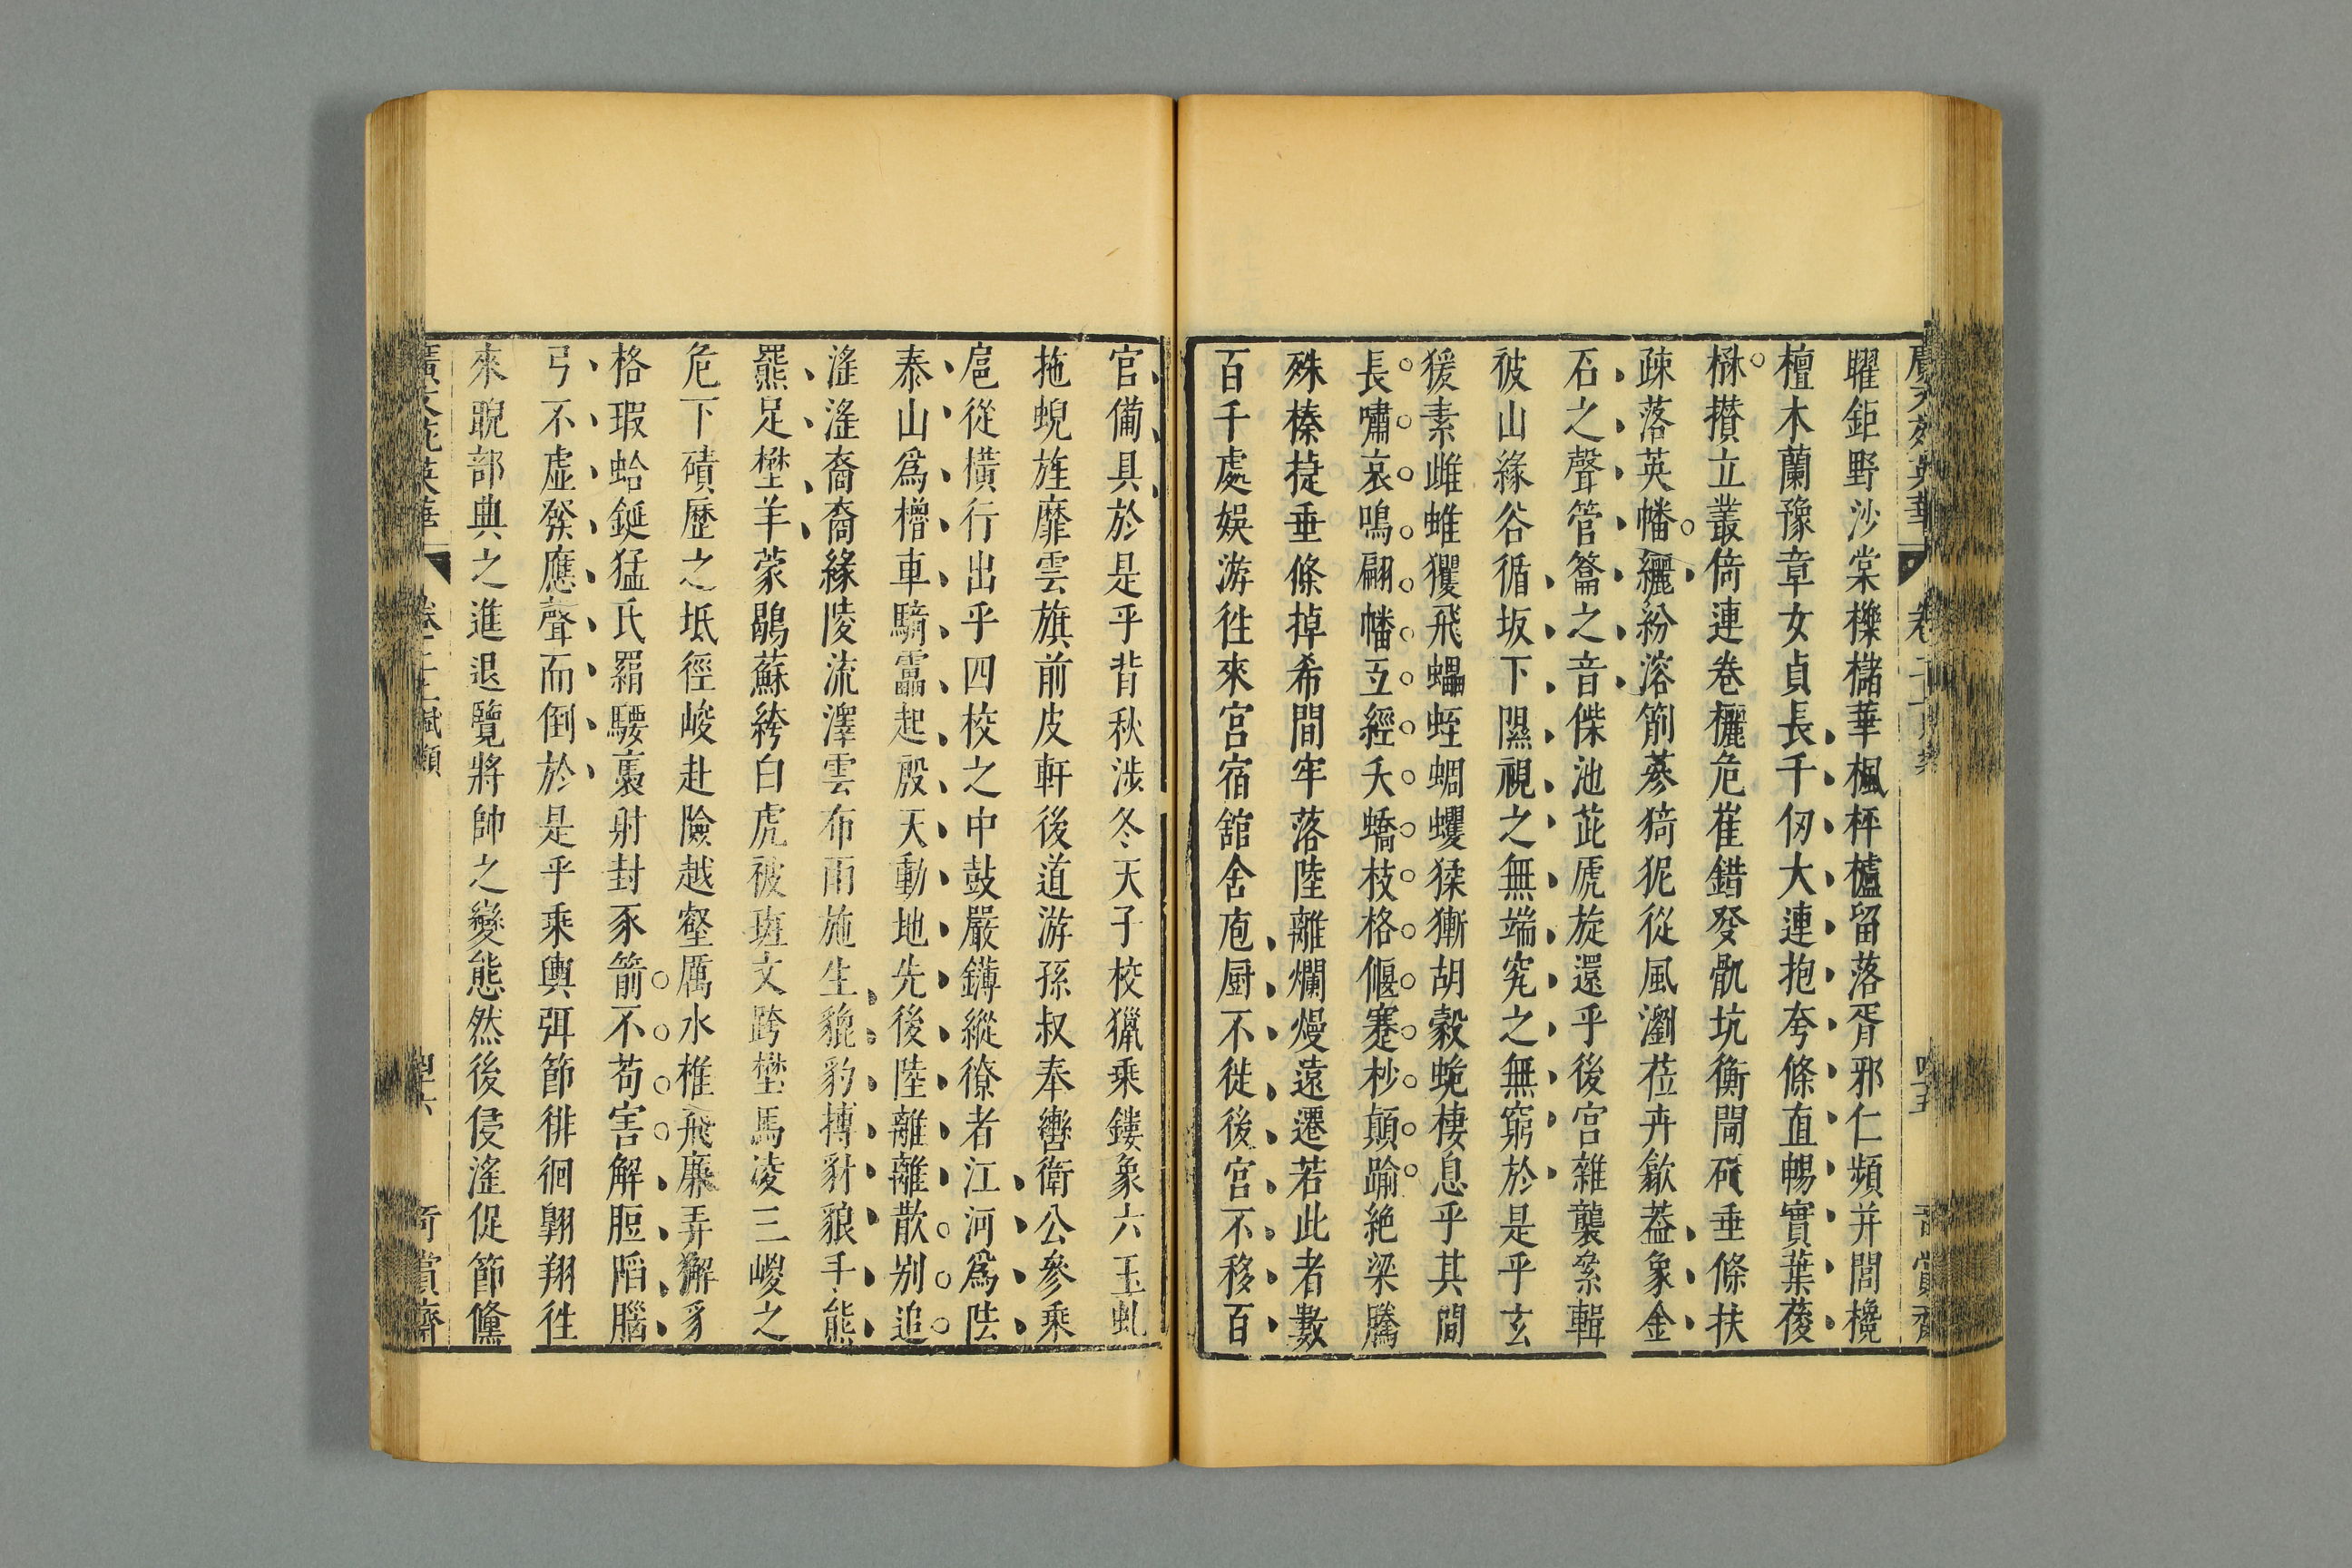 曜鉅野沙棠櫟櫧華楓枰櫨留落胥邪仁頻并閭欃
檀木蘭豫章女貞長千仞大連抱夸條直暢實葉葰
楙攅立叢倚連卷欐佹崔錯癹骫坑衡閜砢垂條扶
疎落英幡纚紛溶箾蔘猗狔從風瀏莅卉歙葢象金
石之聲管籥之音偨池茈虒旋還乎後宮雜襲絫輯
彼山緣谷循坂下隰視之無端究之無窮於是乎玄
猨素雌蜼玃飛蠝蛭蜩蠼猱獑胡縠蛫棲息乎其間
長嘯哀鳴翩幡互經夭蟜枝格偃蹇杪顛踰絶梁騰
殊榛捷垂條掉希間牢落陸離爛熳遠遷若此者數
百千處娛游徃來宮宿舘舍庖厨不徙後宮不移百
官備具於是乎背秋涉冬天子校獵乘鏤象六玉虬
拖蜺旌靡雲旗前皮軒後道游孫叔奉轡衛公參乘
扈從橫行出乎四校之中鼓嚴簿縱獠者江河爲阹
泰山爲櫓車騎靁起殷天動地先後陸離離散别追
滛滛裔裔緣陵流澤雲布雨施生貔豹搏豺狼手熊
羆足壄羊蒙鶡蘇絝白虎被斑文跨壄馬凌三嵕之
危下磧歷之坻徑峻赴險越壑厲水椎飛廉弄獬豸
格瑕蛤鋋猛氏羂騕褭射封豕箭不苟害解脰陷腦
弓不虚發應聲而倒於是乎乘輿弭節徘徊翺翔徃
來睨部曲之進退覽將帥之變態然後侵滛促節儵
廣文苑英華
賦類
奇賞齋